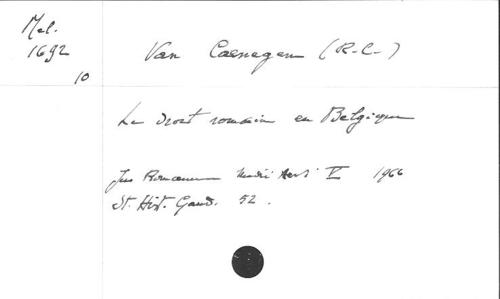 Mel.
1692
10
Van Caenegem (R.C.)
Le droit romain en Belgique
Jus Romanum Medii Aevi V 1966
St. Hist. Gand. 52.